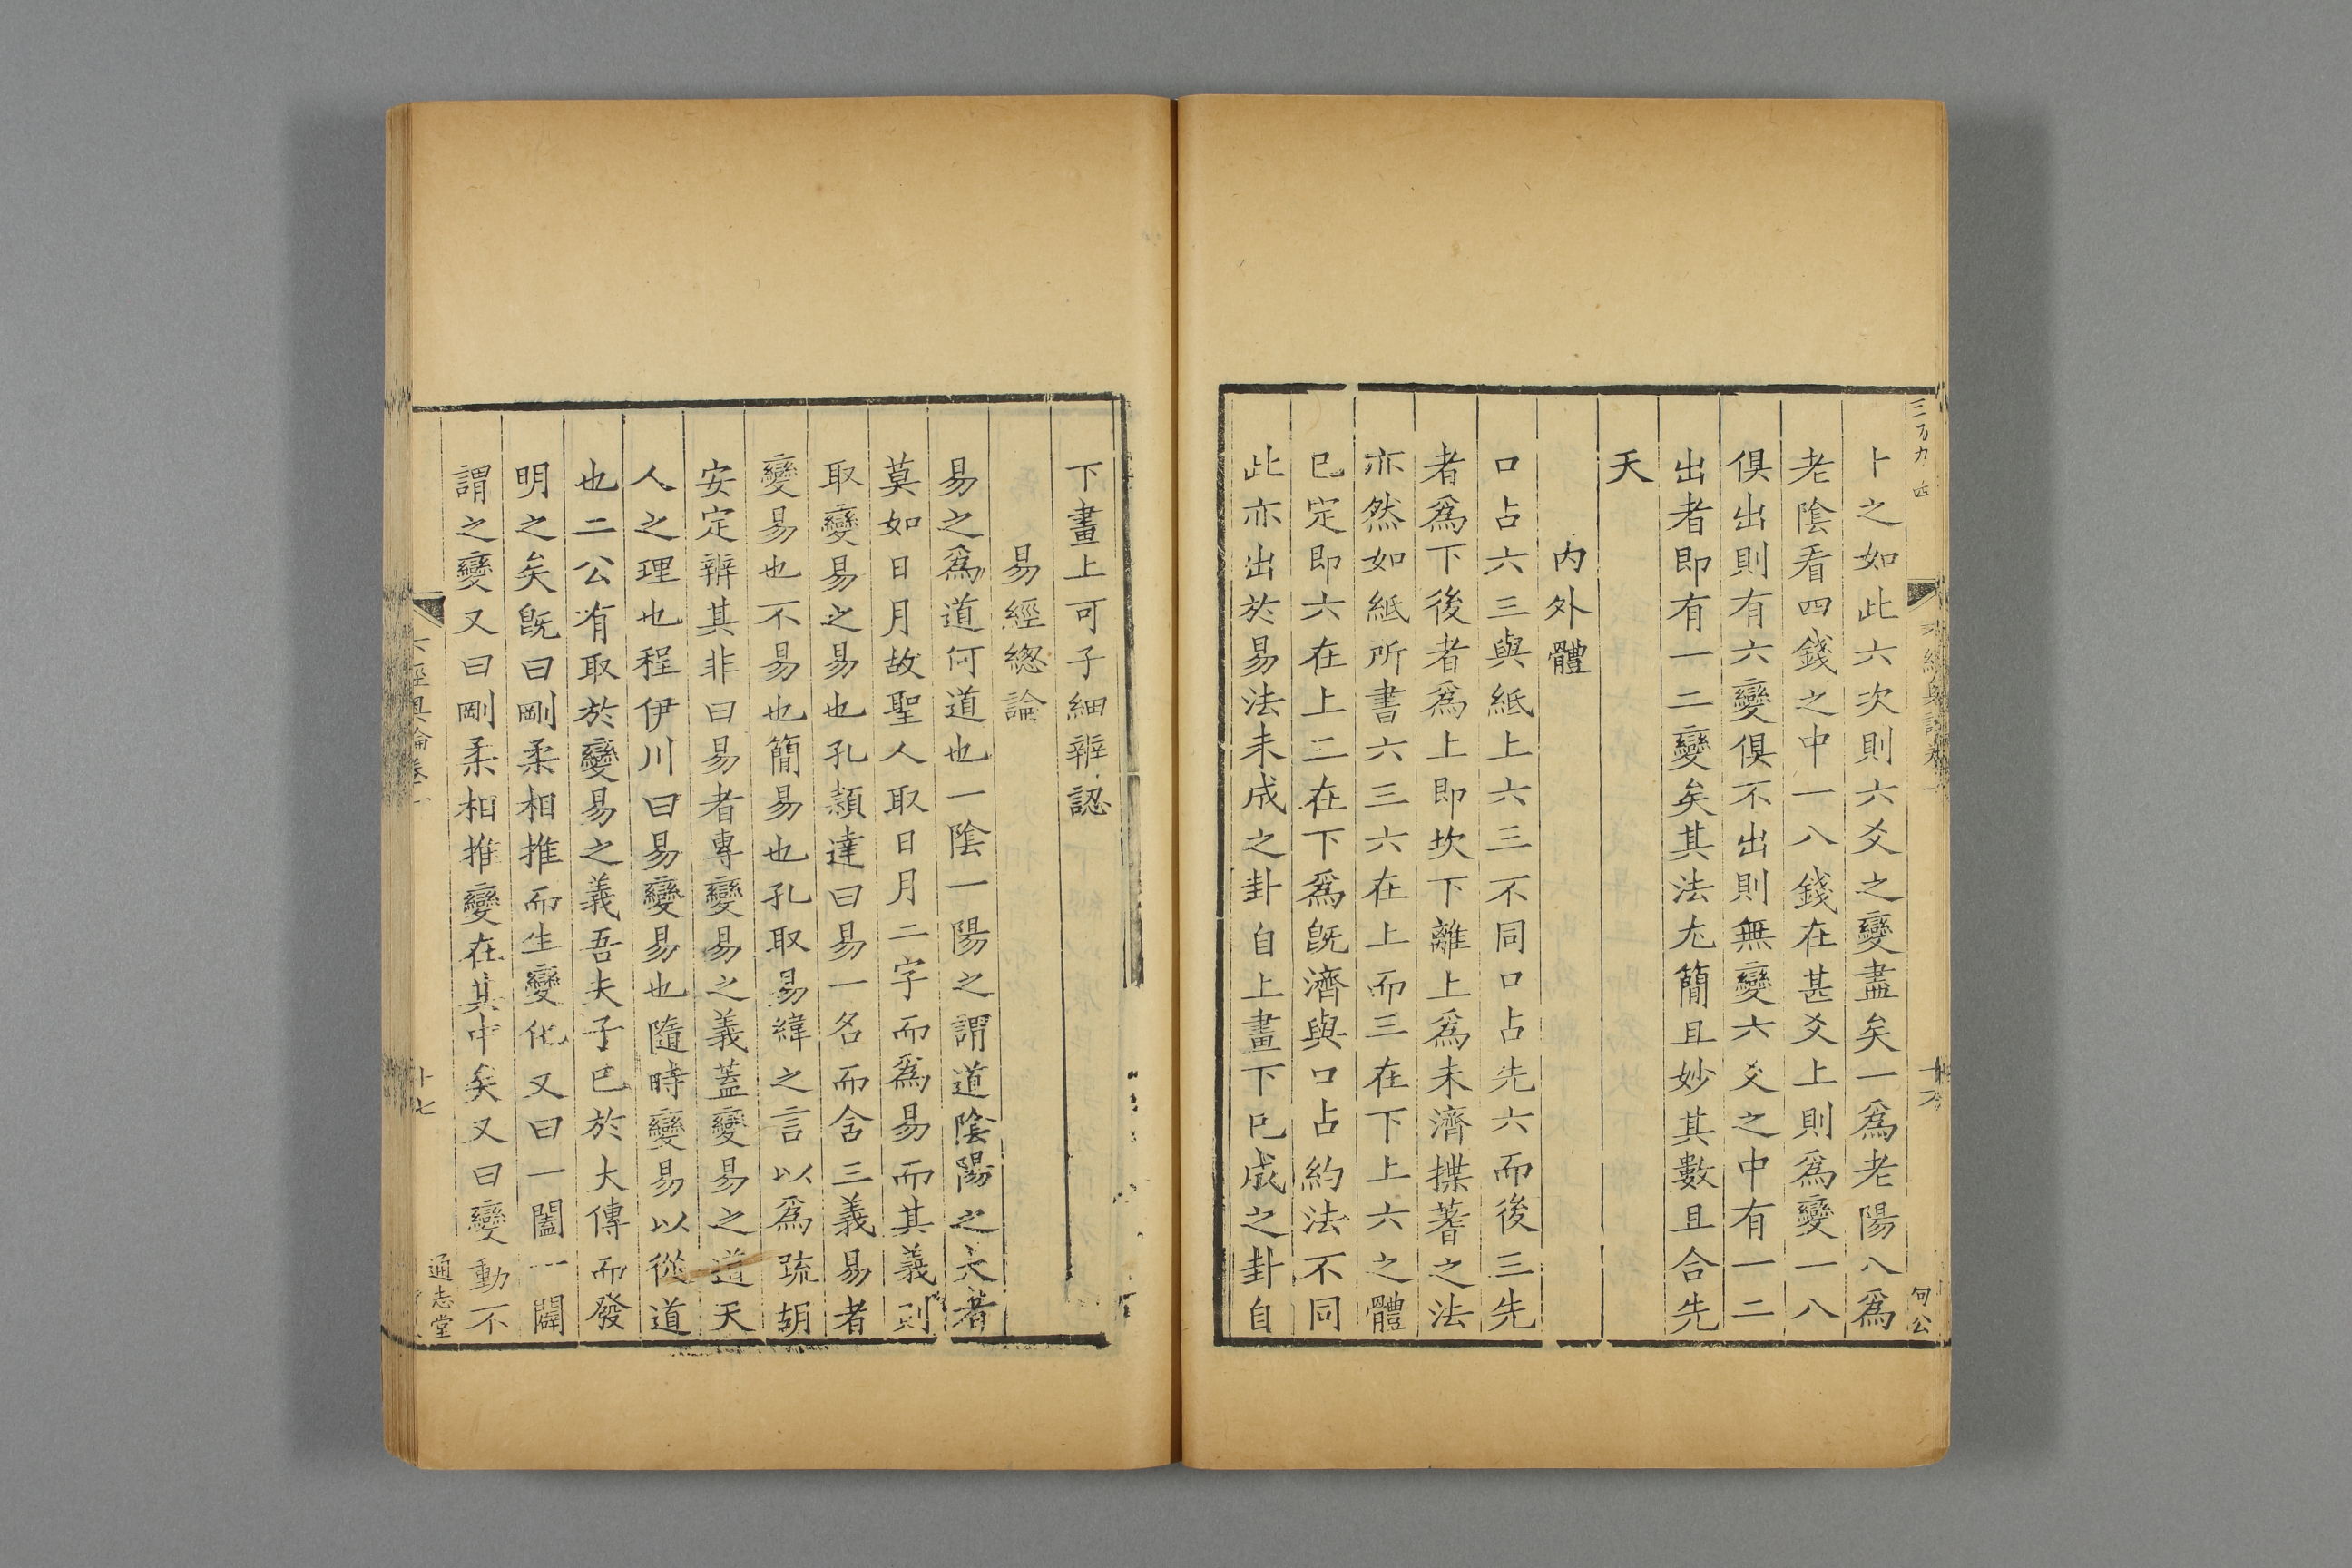 卜之如此六次則六爻之變盡矣一爲老陽八爲
老陰看四錢之中一八錢在甚爻上則爲變一八
俱出則有六變俱不出則無變六爻之中有一二
出者即有一二變矣其法尤簡且妙其數且合先
天
内外體
口占六三與紙上六三不同口占先六而後三先
者爲下後者爲上即坎下離上爲未濟揲蓍之法
亦然如紙所書六三六在上而三在下上六之體
已定即六在上三在下爲旣濟與口占約法不同
此亦出於易法未成之卦自上畫下已成之卦自
句公
下畫上可子細辨認
易經總論
易之爲道何道也一陰一陽之謂道陰陽之大者
莫如日月故聖人取日月二字而爲易而其義則
取變易之易也孔頴達曰易一名而含三義易者
變易也不易也簡易也孔取易緯之言以爲疏胡
安定辨其非曰易者專變易之義蓋變易之道天
人之理也程伊川曰易變易也隨時變易以從道
也二公有取於變易之義吾夫子已於大傳而發
明之矣旣曰剛柔相推而生變化又曰一闔一闢
謂之變又曰剛柔相推變在其中矣又曰變動不
六經奧論卷一
十七
通志堂